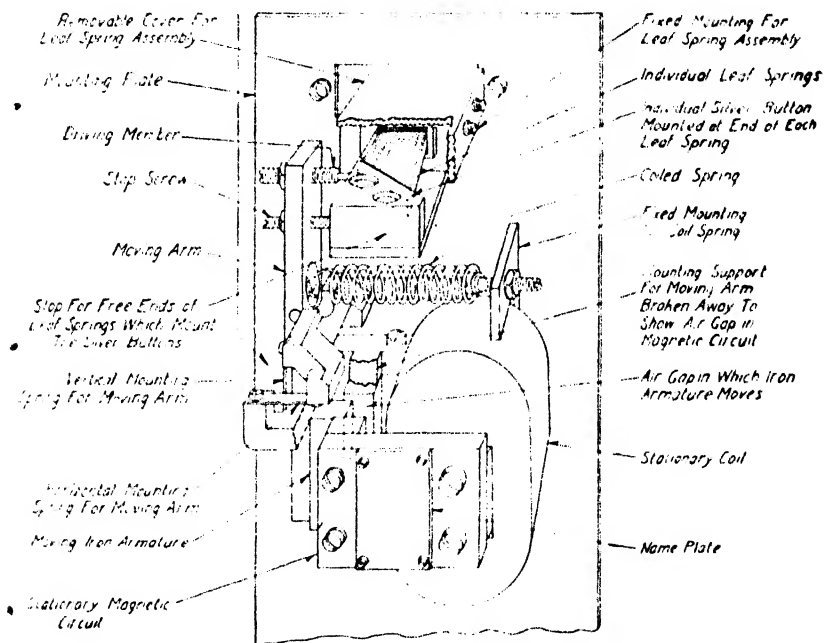 Removable Cover For
Leaf Spring Assembly
Mounting Plate
Driving Member
Stop Screw
Moving Arm
Stop For Free Ends of
Leaf Springs Which Mount
The Silver Buttons
Vertical Mounting
Spring For Moving Arm
Horizontal Mounting
Spring For Moving Arm
Moving Iron Armature
Stationary Magnetic
Circuit
Fixed Mounting For
Leaf Spring Assembly
Individual Leaf Springs
Individual Silver Button
Mounted at End of Each
Leaf Spring
Coiled Spring
Fixed Mounting
Coil Spring
Mounting Support
For Moving Arm
Broken Away To
Show Air Gap in
Magnetic Circuit
Air Gap in Which Iron
Armature Moves
Stationary Coil
Name Plate